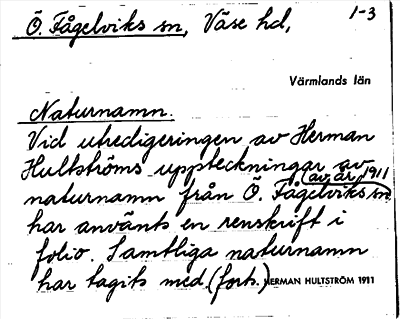 Ö. Fågelviks sn, Väse hd, 1-3
Värmlands län
Naturnamn.
Vid utredigeringen av Herman
Hultströms uppteckningar av
(av år 1911
naturnamn från Ö. Fågelviks sn
har använts en renskrift i
folio. Samtliga naturnamn
har tagits med. (forts.) HERMAN HULTSTRÖM 1911